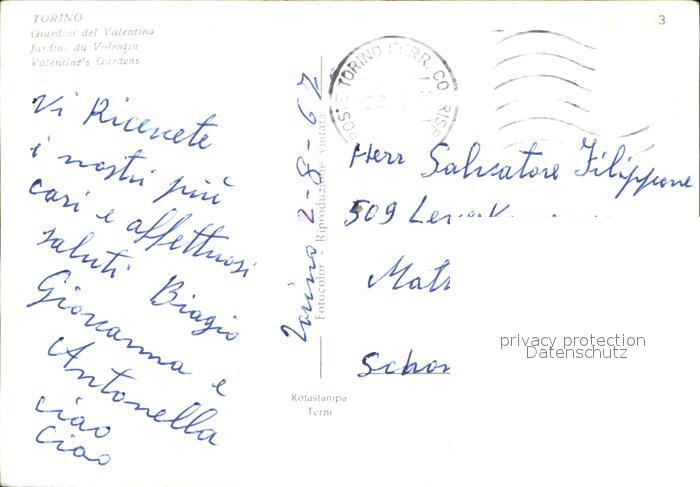 TORINO
Giardini del Valentino
Jardins du Valentin
Valentine's Gardens
3
Vi Ricevete
i nostri più
cari e affettuosi
saluti Biagio
Giovanna e
Antonella
ciao
ciao
Torino 2-8-67
Fotocolor - Riproduzione Vietata
Rotastampa
Terni
POSTE TORINO FERR. CORRISP
Herr Salvatore Filippone
509 Lev
Mat
Schon
privacy protection
Datenschutz